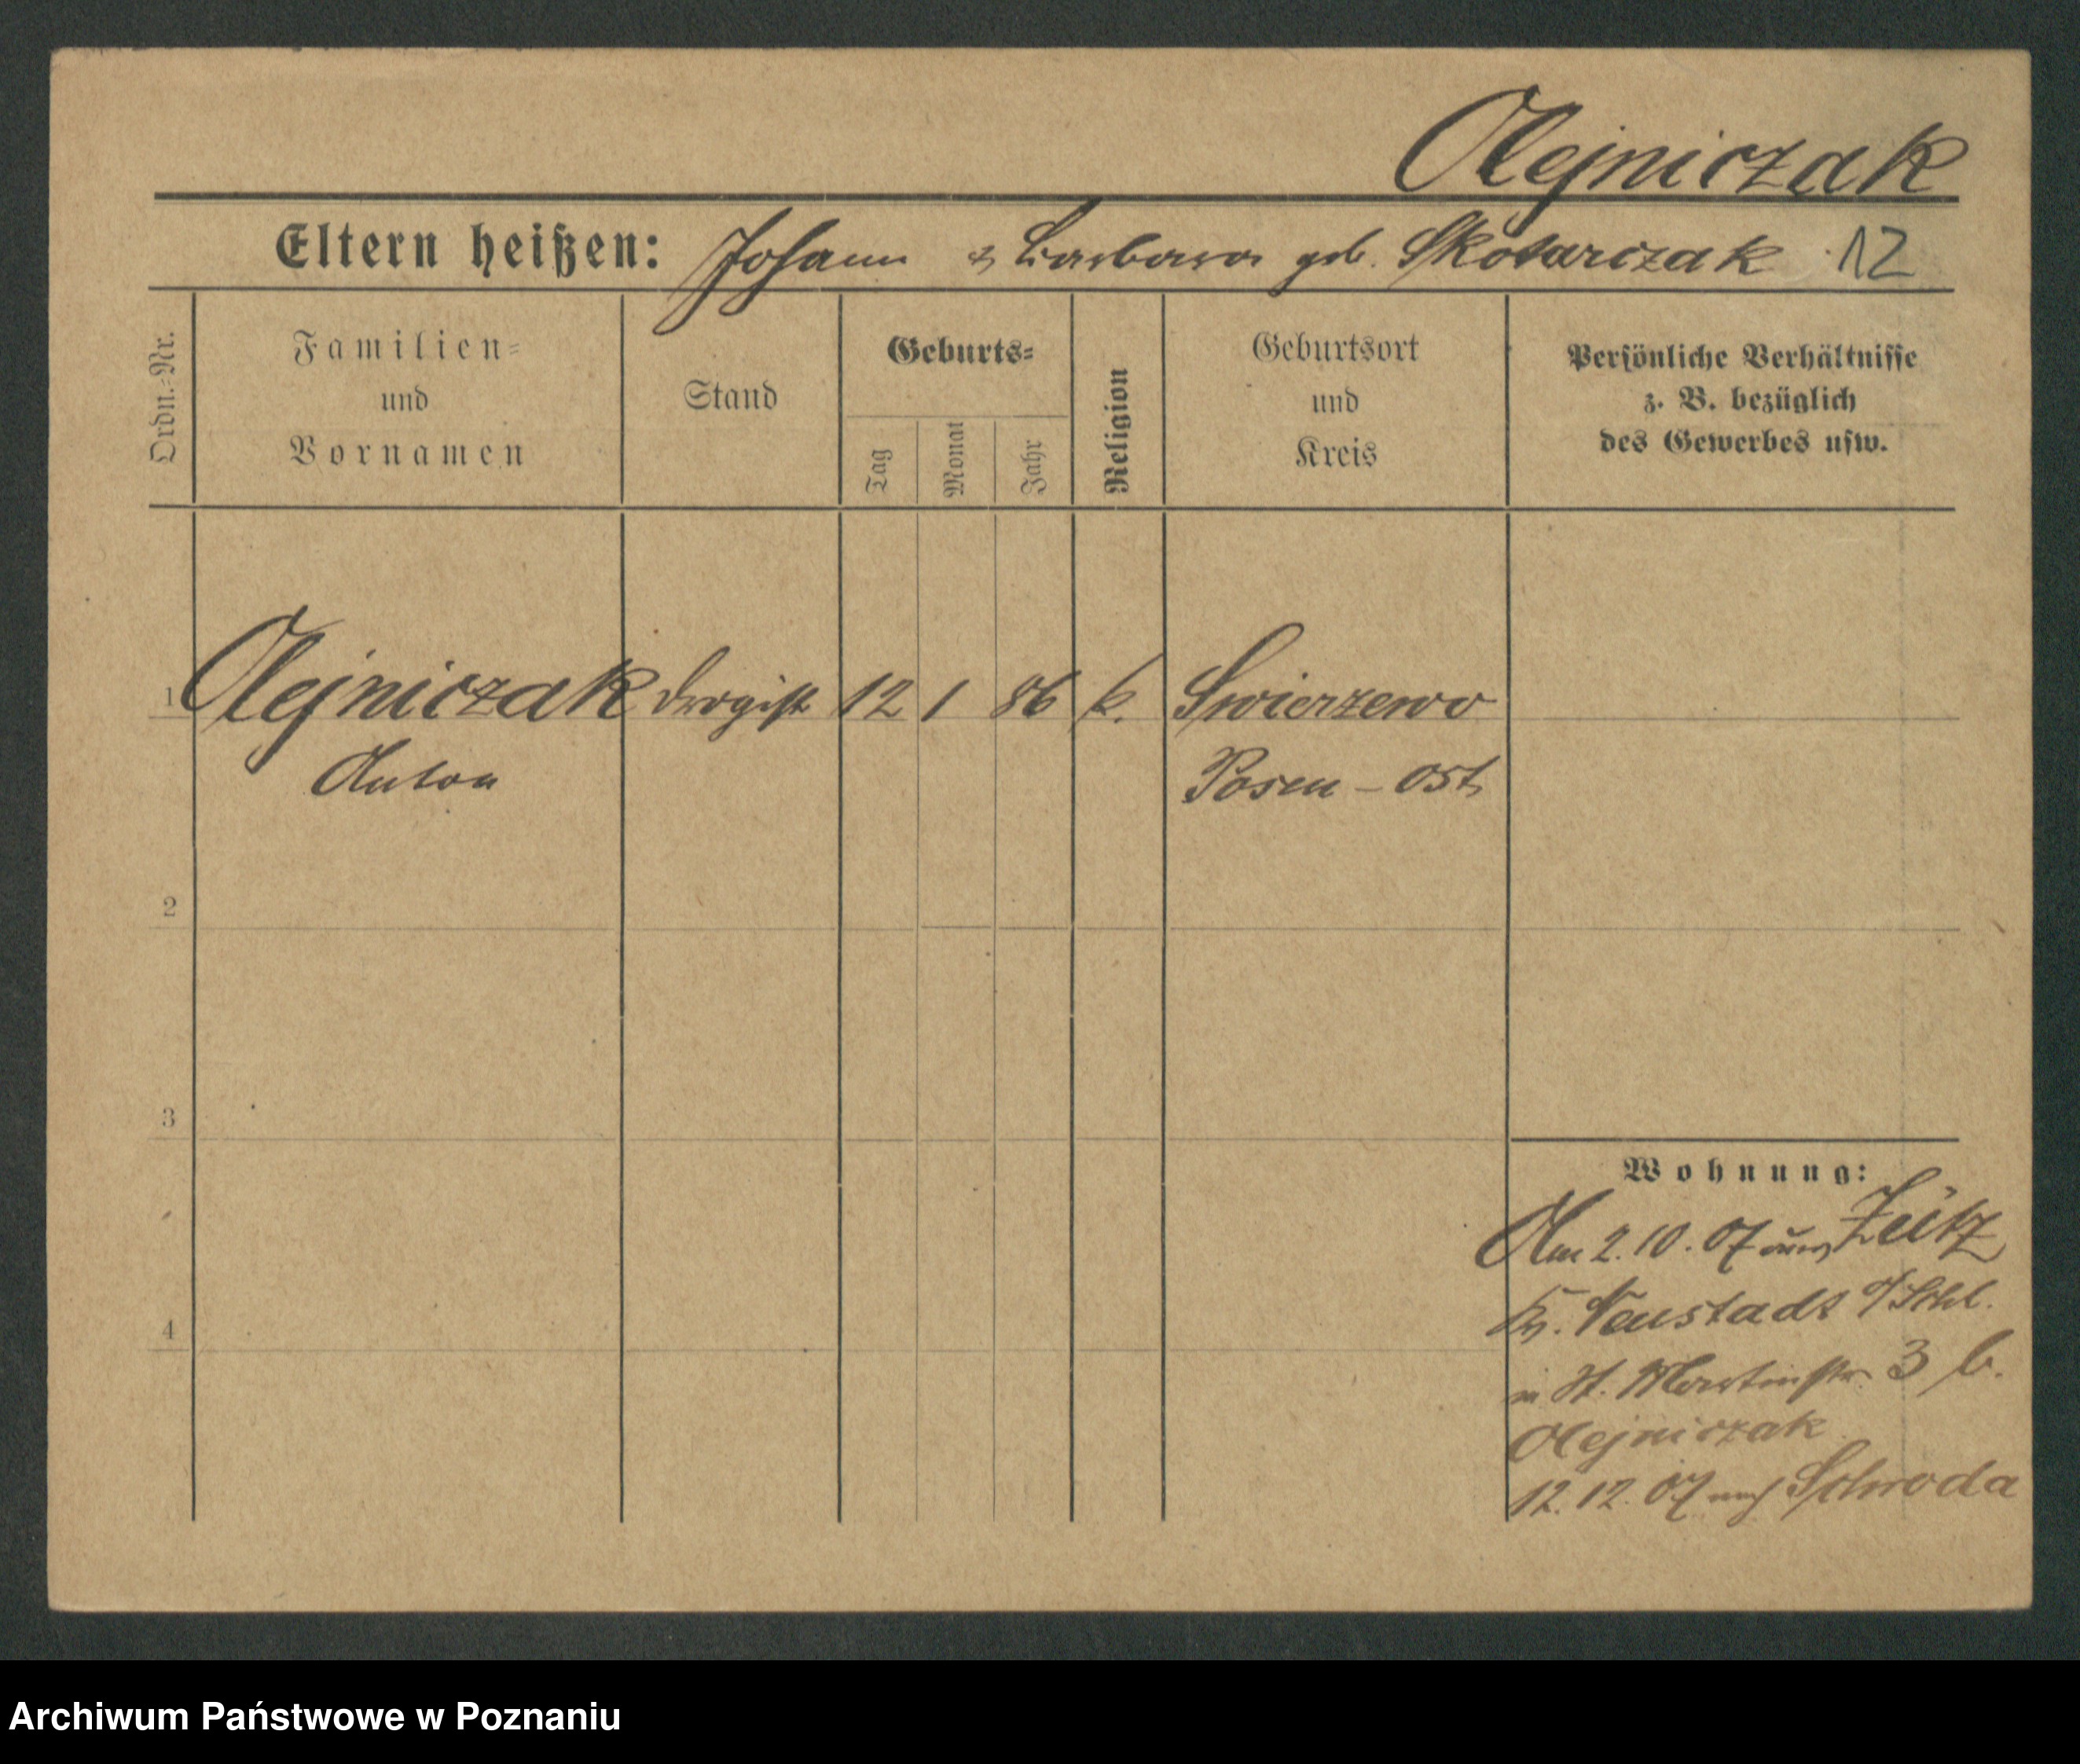 Olejniczak
Eltern heißen: Johann & Barbara geb. Skotarczak 12
Ordn.-Nr.
Familien-
und
Vornamen
Stand
Geburts-
Tag
Monat
Jahr
Religion
Geburtsort
und
Kreis
Persönliche Verhältnisse
z. B. bezüglich
des Gewerbes usw.
1 Olejniczak Drogist 12 1 86 k. Swierzewo
Anton Posen - Ost
2
3
4
Wohnung:
Am 2.10.07 aus Zeitz
Kr. Neustadt O/Schl.
in St. Martinstr. 3 b.
Olejniczak
12.12.07 nach Schroda
Archiwum Państwowe w Poznaniu